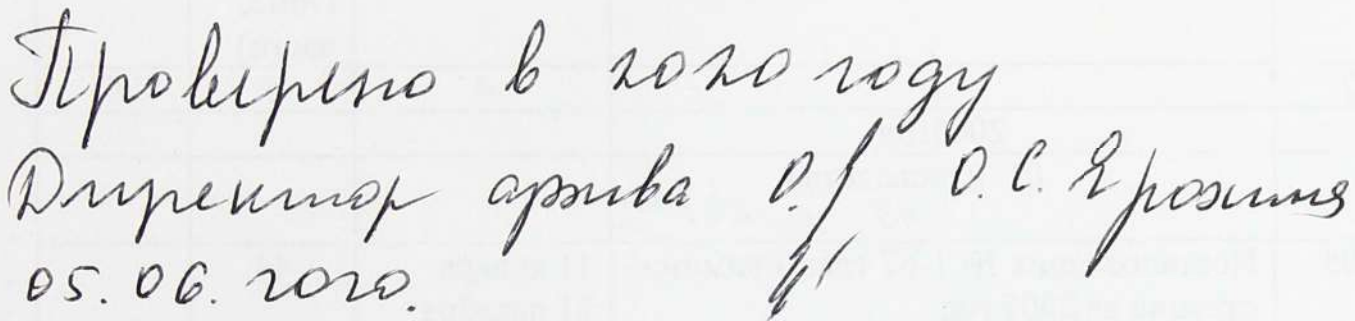 Проверено в 2020 году
Директор архива О. С. Ерохина
05.06.2020.